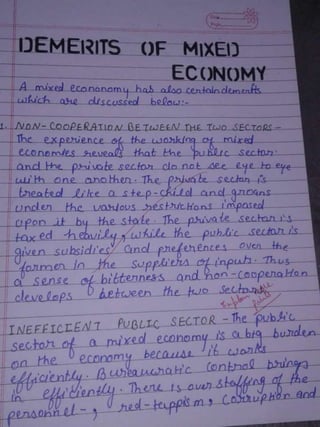 DEMERITS OF MIXED
ECONOMY
A mixed econonomy has also certain demerits
which are discussed below:-
1. NON-COOPERATION BETWEEN THE TWO SECTORS-
The experience of the working of mixed
economies reveals that the public sector
and the private sector do not see eye to eye
with one another. The private sector is
treated like a step-child and groans
under the various restrictions imposed
upon it by the state. The private sector is
taxed heavily, while the public sector is
given subsidies and preferences over the
former in the suppliers of inputs. Thus
a sense of bitterness and non-cooperation
develops between the two sectors
INEFFICIENT PUBLIC SECTOR - The public
sector of a mixed economy is a big burden
on the economy because it works
efficiently. Bureaucratic control brings
in efficiently. There is over staffing of the
personnel-, red-tappism, corruption and